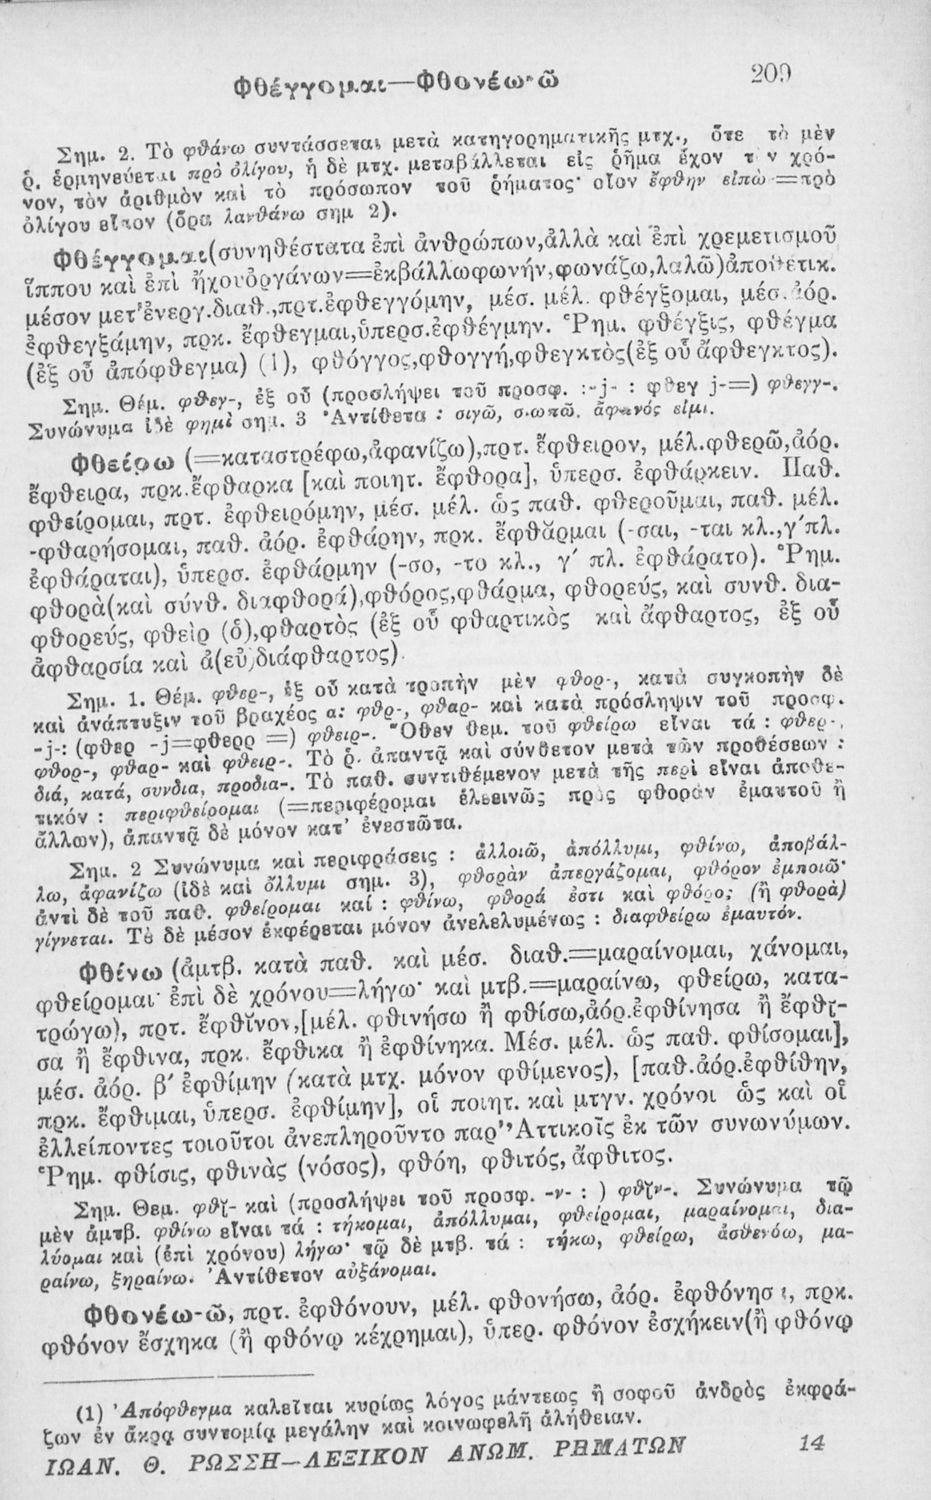 Φθέγγομαι—Φθονέω-ῶ 209
Σημ. 2. Τὸ φθάνω συντάσσεται μετὰ κατηγορηματικῆς μτχ., ὅτε τὸ μὲν
ῥ. ἑρμηνεύεται πρὸ ὀλίγου, ἡ δὲ μτχ. μεταβάλλεται εἰς ῥῆμα ἔχον τὸν χρό-
νον, τὸν ἀριθμὸν καὶ τὸ πρόσωπον τοῦ ῥήματος· οἷον ἔφθην εἰπὼ=πρὸ
ὀλίγου εἶπον (ὅρα λανθάνω σημ 2).
Φθέγγομαι(συνηθέστατα ἐπὶ ἀνθρώπων,ἀλλὰ καὶ ἐπὶ χρεμετισμοῦ
ἵππου καὶ ἐπὶ ἤχου ὀργάνων=ἐκβάλλω φωνήν,φωνάζω,λαλῶ)ἀποθετικ.
μέσον μετ' ἐνεργ.διαθ.,πρτ.ἐφθεγγόμην, μέσ. μέλ. φθέγξομαι, μέσ.ἀόρ.
ἐφθεγξάμην, πρκ. ἔφθεγμαι,ὑπερσ.ἐφθέγμην. Ῥημ. φθέγξις, φθέγμα
(ἐξ οὗ ἀπόφθεγμα) (1), φθόγγος,φθογγή,φθεγκτὸς(ἐξ οὗ ἄφθεγκτος).
Σημ. Θέμ. φθεγ-, ἐξ οὗ (προσλήψει τοῦ προσφ. :-j- : φθεγ j-=) φθεγγ-.
Συνώνυμα ἰδὲ φημὶ σημ. 3 Ἀντίθετα : σιγῶ, σιωπῶ, ἀφανός εἰμι.
Φθείρω (=καταστρέφω,ἀφανίζω),πρτ. ἔφθειρον, μέλ.φθερῶ,ἀόρ.
ἔφθειρα, πρκ.ἔφθαρκα [καὶ ποιητ. ἔφθορα], ὑπερσ. ἐφθάρκειν. Παθ.
φθείρομαι, πρτ. ἐφθειρόμην, μέσ. μέλ. ὡς παθ. φθεροῦμαι, παθ. μέλ.
-φθαρήσομαι, παθ. ἀόρ. ἐφθάρην, πρκ. ἔφθαρμαι (-σαι, -ται κλ.,γ΄πλ.
ἐφθάραται), ὑπερσ. ἐφθάρμην (-σο, -το κλ., γ΄ πλ. ἐφθάρατο). Ῥημ.
φθορὰ(καὶ σύνθ. διαφθορά),φθόρος,φθάρμα, φθορεύς, καὶ συνθ. δια-
φθορεύς, φθεὶρ (ὁ),φθαρτὸς (ἐξ οὗ φθαρτικὸς καὶ ἄφθαρτος, ἐξ οὗ
ἀφθαρσία καὶ ἀ(εὐ)διάφθαρτος).
Σημ. 1. Θέμ. φθερ-, ἐξ οὗ κατὰ τροπὴν μὲν φθορ-, κατὰ συγκοπὴν δὲ
καὶ ἀνάπτυξιν τοῦ βραχέος α: φθρ-, φθαρ- καὶ κατὰ πρόσληψιν τοῦ προσφ.
-j-: (φθερ -j=φθερρ =) φθειρ-. Ὅθεν θεμ. τοῦ φθείρω εἶναι τά : φθερ-,
φθορ-, φθαρ- καὶ φθειρ-. Τὸ ῥ. ἀπαντᾷ καὶ σύνθετον μετὰ τῶν προθέσεων :
διά, κατά, συνδια, προδια-. Τὸ παθ. συντιθέμενον μετὰ τῆς περὶ εἶναι ἀποθε-
τικόν : περιφθείρομαι (=περιφέρομαι ἐλεεινῶς πρὸς φθορὰν ἐμαυτοῦ ἢ
ἄλλων), ἀπαντᾷ δὲ μόνον κατ' ἐνεστῶτα.
Σημ. 2 Συνώνυμα καὶ περιφράσεις : ἀλλοιῶ, ἀπόλλυμι, φθίνω, ἀποβάλ-
λω, ἀφανίζω (ἰδὲ καὶ ὄλλυμι σημ. 3), φθορὰν ἀπεργάζομαι, φθόρον ἐμποιῶ·
ἀντὶ δὲ τοῦ παθ. φθείρομαι καί : φθίνω, φθορά ἐστι καὶ φθόρος (ἢ φθορὰ)
γίγνεται. Τὸ δὲ μέσον ἐκφέρεται μόνον ἀνελελυμένως : διαφθείρω ἐμαυτόν.
Φθίνω (ἀμτβ. κατὰ παθ. καὶ μέσ. διαθ.=μαραίνομαι, χάνομαι,
φθείρομαι· ἐπὶ δὲ χρόνου=λήγω· καὶ μτβ.=μαραίνω, φθείρω, κατα-
τρώγω), πρτ. ἔφθῑνον,[μέλ. φθινήσω ἢ φθίσω,ἀόρ.ἐφθίνησα ἢ ἔφθῑ-
σα ἢ ἔφθινα, πρκ. ἔφθικα ἢ ἐφθίνηκα. Μέσ. μέλ. ὡς παθ. φθίσομαι],
μέσ. ἀόρ. β΄ ἐφθίμην (κατὰ μτχ. μόνον φθίμενος), [παθ.ἀόρ.ἐφθίθην,
πρκ. ἔφθιμαι,ὑπερσ. ἐφθίμην], οἱ ποιητ. καὶ μτγν. χρόνοι ὡς καὶ οἱ
ἐλλείποντες τοιοῦτοι ἀνεπληροῦντο παρ' Ἀττικοῖς ἐκ τῶν συνωνύμων.
Ῥημ. φθίσις, φθινὰς (νόσος), φθόη, φθιτός, ἄφθιτος.
Σημ. Θεμ. φθῐ- καὶ (προσλήψει τοῦ προσφ. -ν- : ) φθῑν-. Συνώνυμα τῷ
μὲν ἀμτβ. φθίνω εἶναι τά : τήκομαι, ἀπόλλυμαι, φθείρομαι, μαραίνομαι, δια-
λύομαι καὶ (ἐπὶ χρόνου) λήγω· τῷ δὲ μτβ. τά : τήκω, φθείρω, ἀσθενόω, μα-
ραίνω, ξηραίνω. Ἀντίθετον αὐξάνομαι.
Φθονέω-ῶ, πρτ. ἐφθόνουν, μέλ. φθονήσω, ἀόρ. ἐφθόνησα, πρκ.
φθόνον ἔσχηκα (ἢ φθόνῳ κέχρημαι), ὑπερ. φθόνον ἐσχήκειν(ἢ φθόνῳ
(1) Ἀπόφθεγμα καλεῖται κυρίως λόγος μάντεως ἢ σοφοῦ ἀνδρὸς ἐκφρά-
ζων ἐν ἄκρᾳ συντομίᾳ μεγάλην καὶ κοινωφελῆ ἀλήθειαν.
ΙΩΑΝ. Θ. ΡΩΣΣΗ—ΛΕΞΙΚΟΝ ΑΝΩΜ. ΡΗΜΑΤΩΝ 14